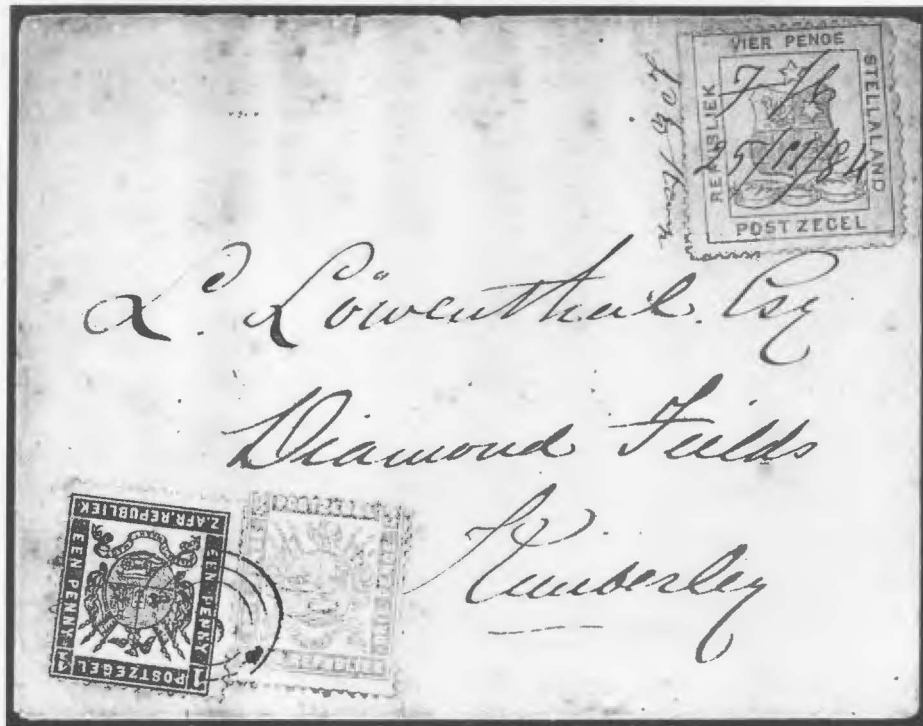 VIER PENCE
REPUBLIEK
STELLALAND
POST ZEGEL
25/11/84
L. Löwenthal. Esq
Diamond Feilds
Kimberley
Z. AFR. REPUBLIEK
EEN PENNY
EEN PENNY
POSTZEGEL
1
1